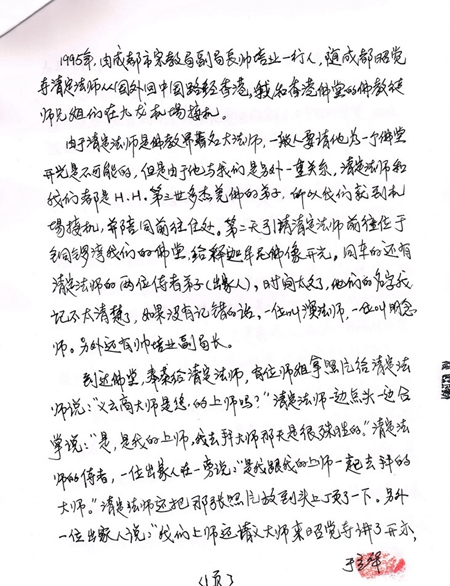 1995年，由成都市宗教局副局長帅培业一行人，随成都昭觉
寺清定法师从国外回中国路经香港，我和香港佛堂的佛教徒
师兄姐们在九龙机場接机。
由于清定法师是佛教界著名大法师，一般人要请他为一个佛堂
开光是不可能的，但是由于他与我们是另外一重关系，清定法师和
我们都是H.H.第三世多杰羌佛的弟子，所以我们就到机
場接机，并陪同前往住处。第二天引请清定法师前往位于
铜锣湾我们的佛堂，给释迦牟尼佛像开光，同车的还有
清定法师的两位侍者弟子(出家人)，时间太久了，他们的名字我
记不太清楚了，如果没有记错的话，一位叫演法师，一位叫明念
师。另外还有帅培业副局长。
到达佛堂，奉茶给清定法师，有位师姐拿照片给清定法
师说："义云高大师是您的上师吗？"清定法师一边点头一边合
掌说："是，是我的上师，我去拜大师那天是很殊胜的。"清定法
师的侍者，一位出家人在一旁说："是我跟我的上师一起去拜的
大师。"清定法师还把那张照片放到头上顶了一下。另外
一位出家人说："我们上师还请义大师来昭觉寺讲了开示，
(1页)